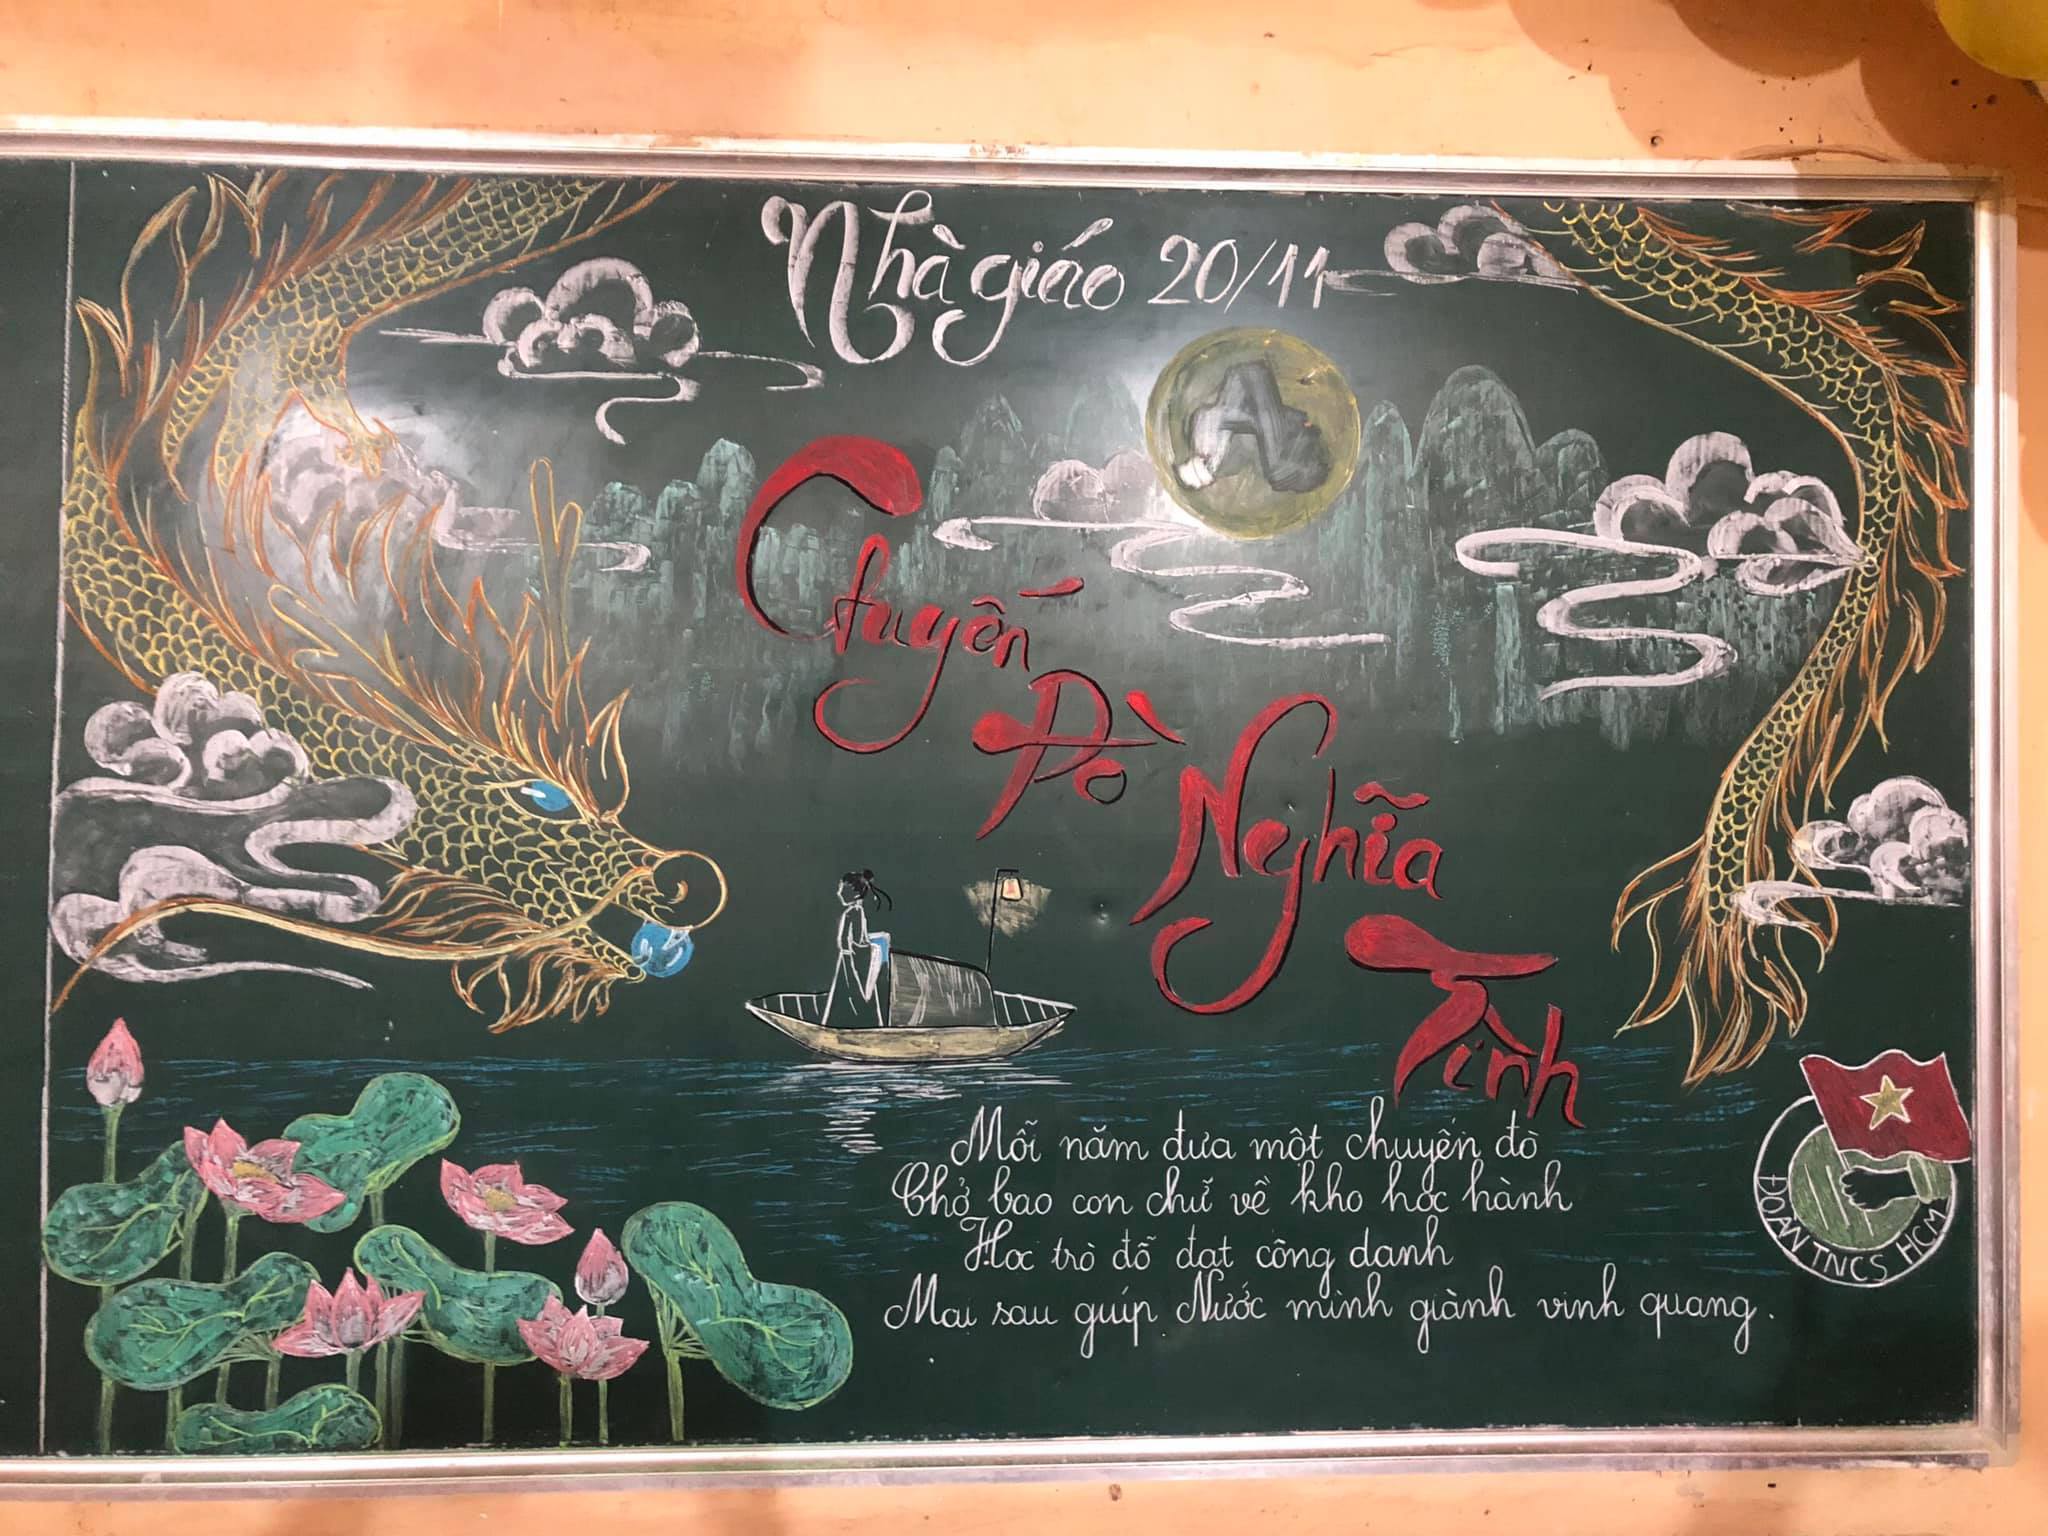 Nhà giáo 20/11
A
Chuyến
Đò
Nghĩa
Tình
Mỗi năm đưa một chuyến đò
Chở bao con chữ về kho học hành
Học trò đỗ đạt công danh
Mai sau giúp Nước mình giành vinh quang.
ĐOÀN TNCS HCM